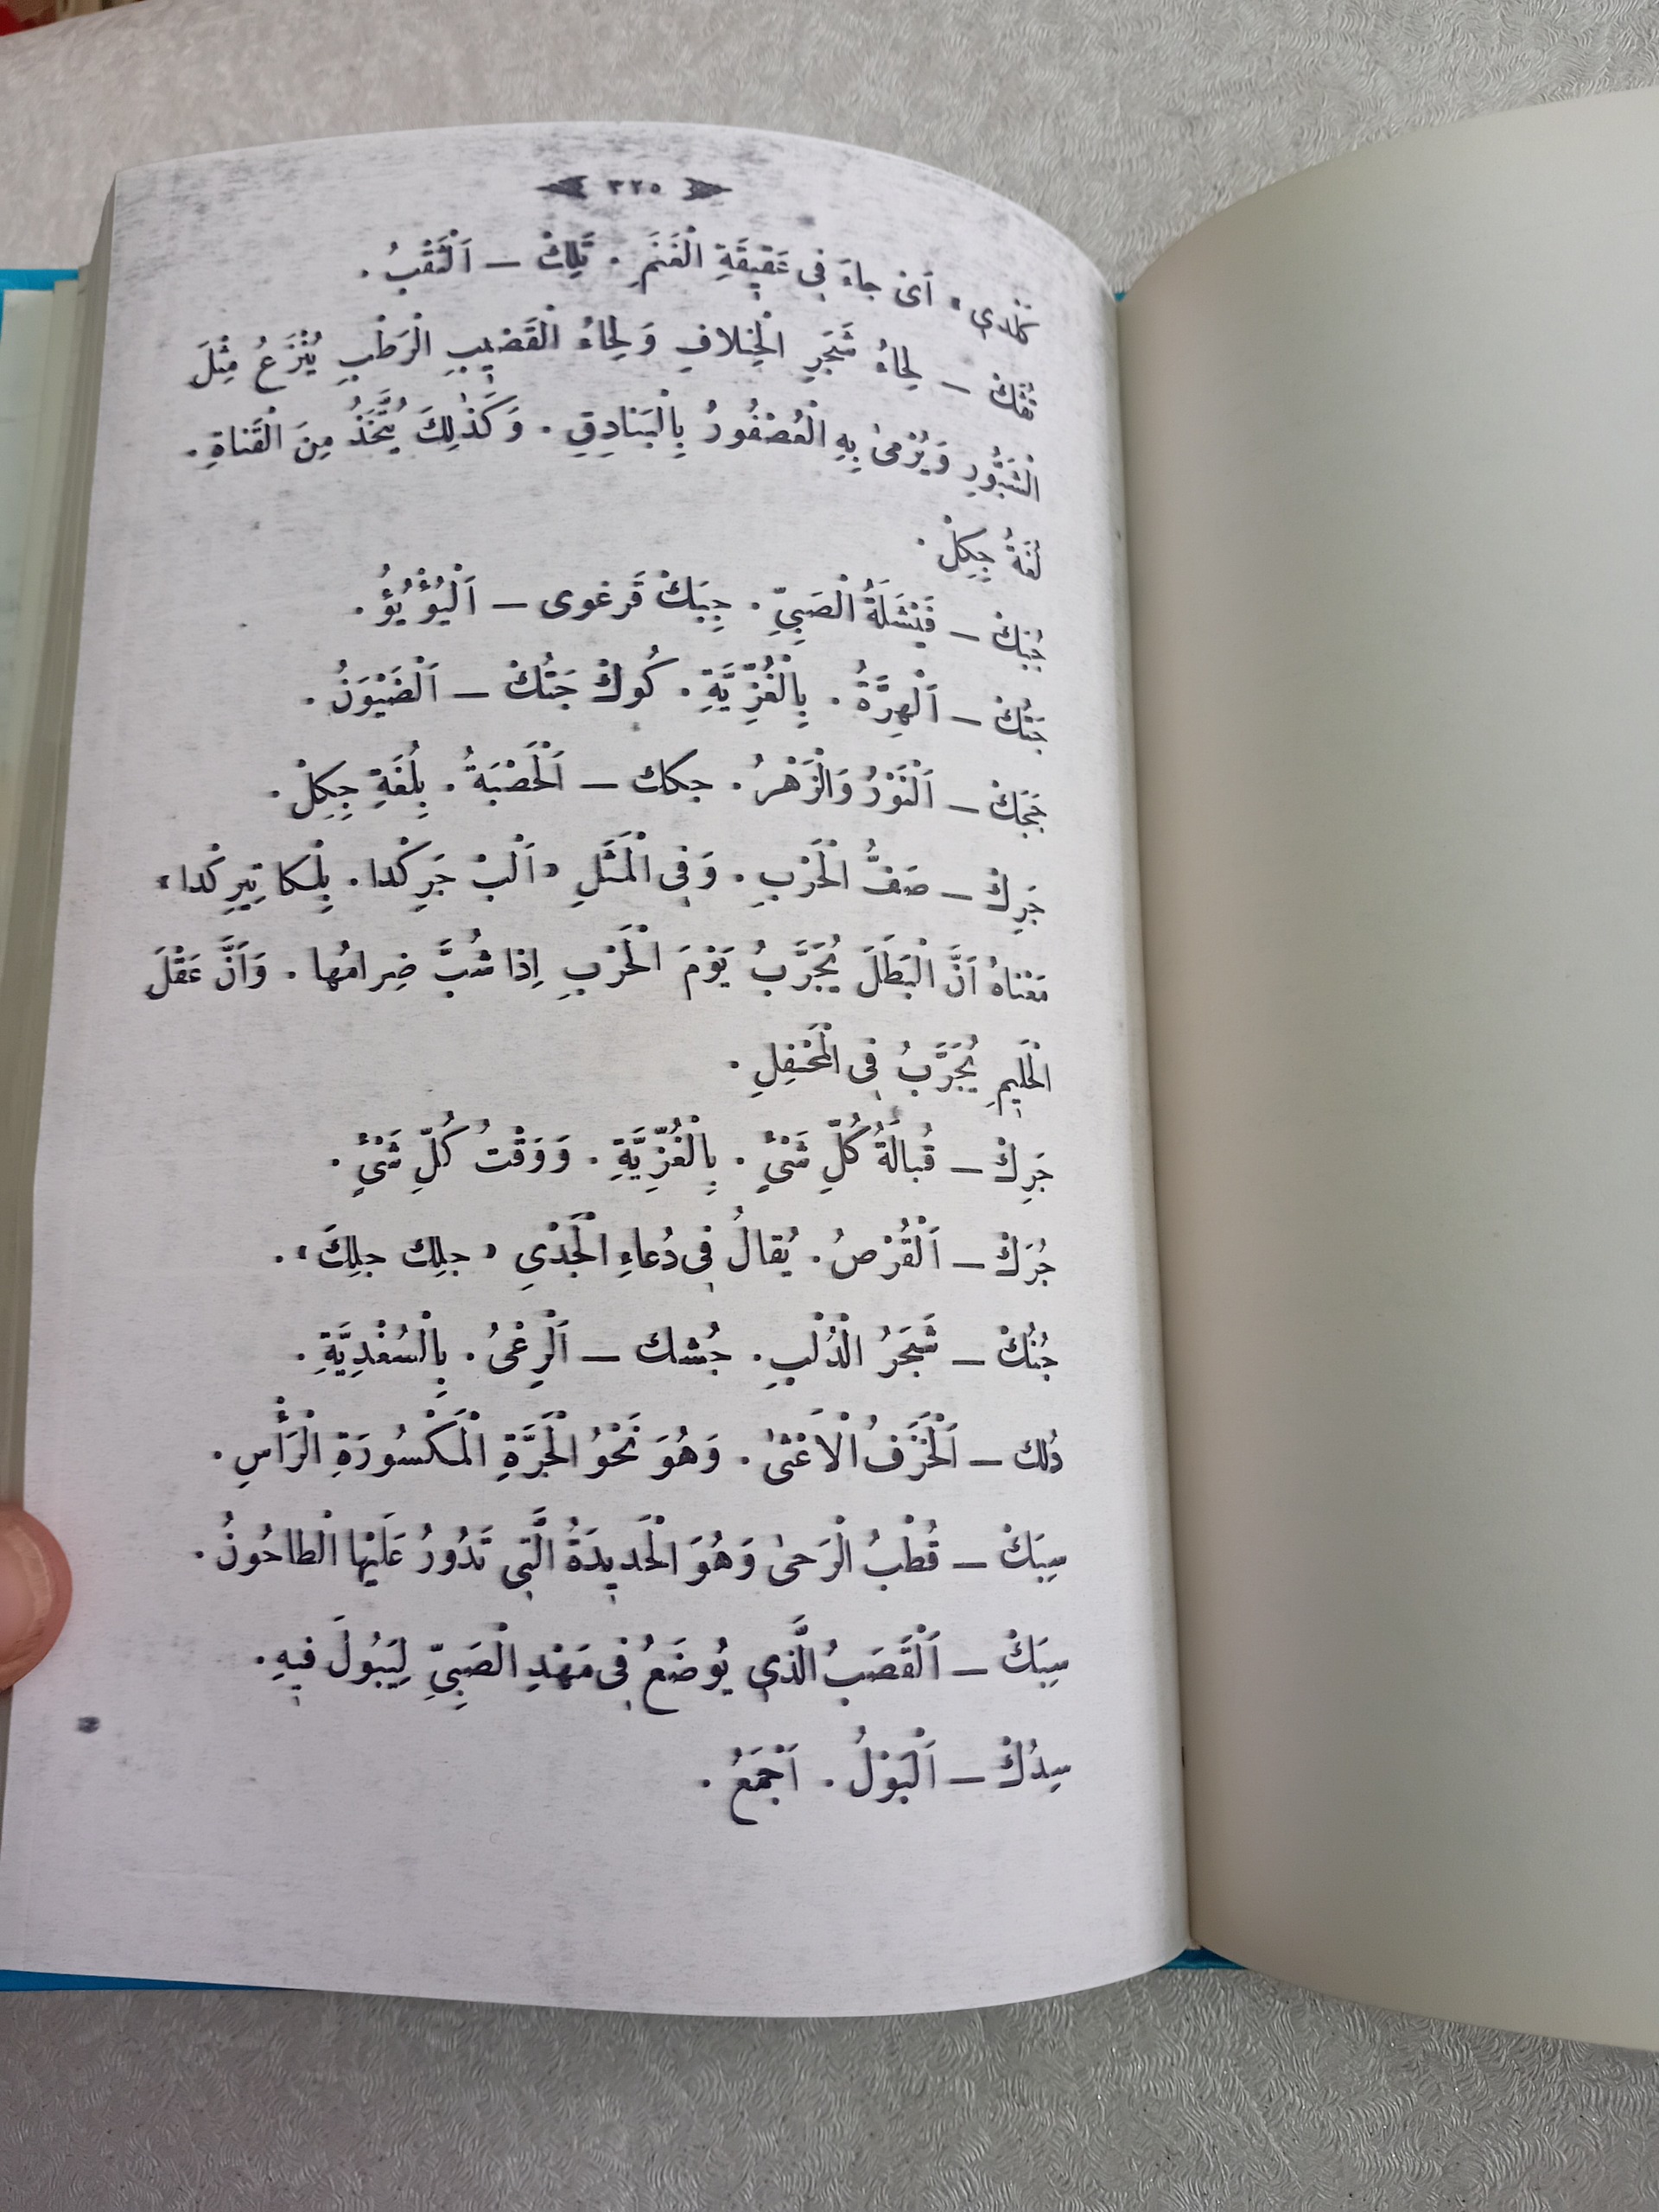 ٣٢٥
كَلدى» اَىْ جاءَ فِى عَقيقَةِ الْغَنَمِ . تَلِكْ – اَلْثَقْبُ .
– لِحاءُ شَجَرِ الْخِلافِ وَلِحاءُ الْقَضيبِ الْرَطْبِ يُنْزَعُ مِثْلَ
الْشَبُّورِ وَيُرْمىٰ بِهِ الْعُصْفُورُ بِالْبَنادِقِ . وَكَذٰلِكَ يُتَّخَذُ مِنَ الْقَناةِ .
لُغَةُ جِكِلْ .
جُبُكْ – فَيْشَلَةُ الْصَبِىِّ . جِبَكْ قَرغوى – اَلْيُؤْيُؤُ .
جَتُكْ – اَلْهِرَّةُ . بِالْغُزِّيَّةِ . كُوكْ جَتُكْ – اَلْضَيْوَنُ .
جَجَكْ – اَلْنَوْرُ وَالْزَهْرُ . جكك – اَلْحَصْبَةُ . بِلُغَةِ جِكِلْ .
جَرِكْ – صَفُّ الْحَرْبِ . وَفِى الْمَثَلِ «اَلْبْ جَرِكْدا . بِلْكا تِيرِكْدا»
مَعْناهُ اَنَّ الْبَطَلَ يُجَرَّبُ يَوْمَ الْحَرْبِ اِذا شُبَّ ضِرامُها . وَاَنَّ عَقْلَ
الْحَليمِ يُجَرَّبُ فِى الْمَحْفِلِ .
جَرِكْ – قُبالَةُ كُلِّ شَىْءٍ . بِالْغُزِّيَّةِ . وَوَقْتُ كُلِّ شَىْءٍ .
جُرَكْ – اَلْقُرْصُ . يُقالُ فِى دُعاءِ الْجَدْىِ «جلِك جلِكَ» .
جُنُكْ – شَجَرُ الْدُلْبِ . جُشك – اَلْرِعْىُ . بِالْسُغْدِيَّةِ .
دُلك – اَلْخَزَفُ الْاَعْتىٰ . وَهُوَ نَحْوُ الْجَرَّةِ الْمَكْسُورَةِ الْرَأْسِ .
سِبَكْ – قُطْبُ الْرَحىٰ وَهُوَ الْحَديدَةُ الَّتى تَدُورُ عَلَيْها الْطاحُونُ .
سِبَكْ – اَلْقَصَبُ الَّذى يُوضَعُ فِى مَهْدِ الْصَبِىِّ لِيَبُولَ فيهِ .
سِدُكْ – اَلْبَوْلُ . اَجْمَعُ .